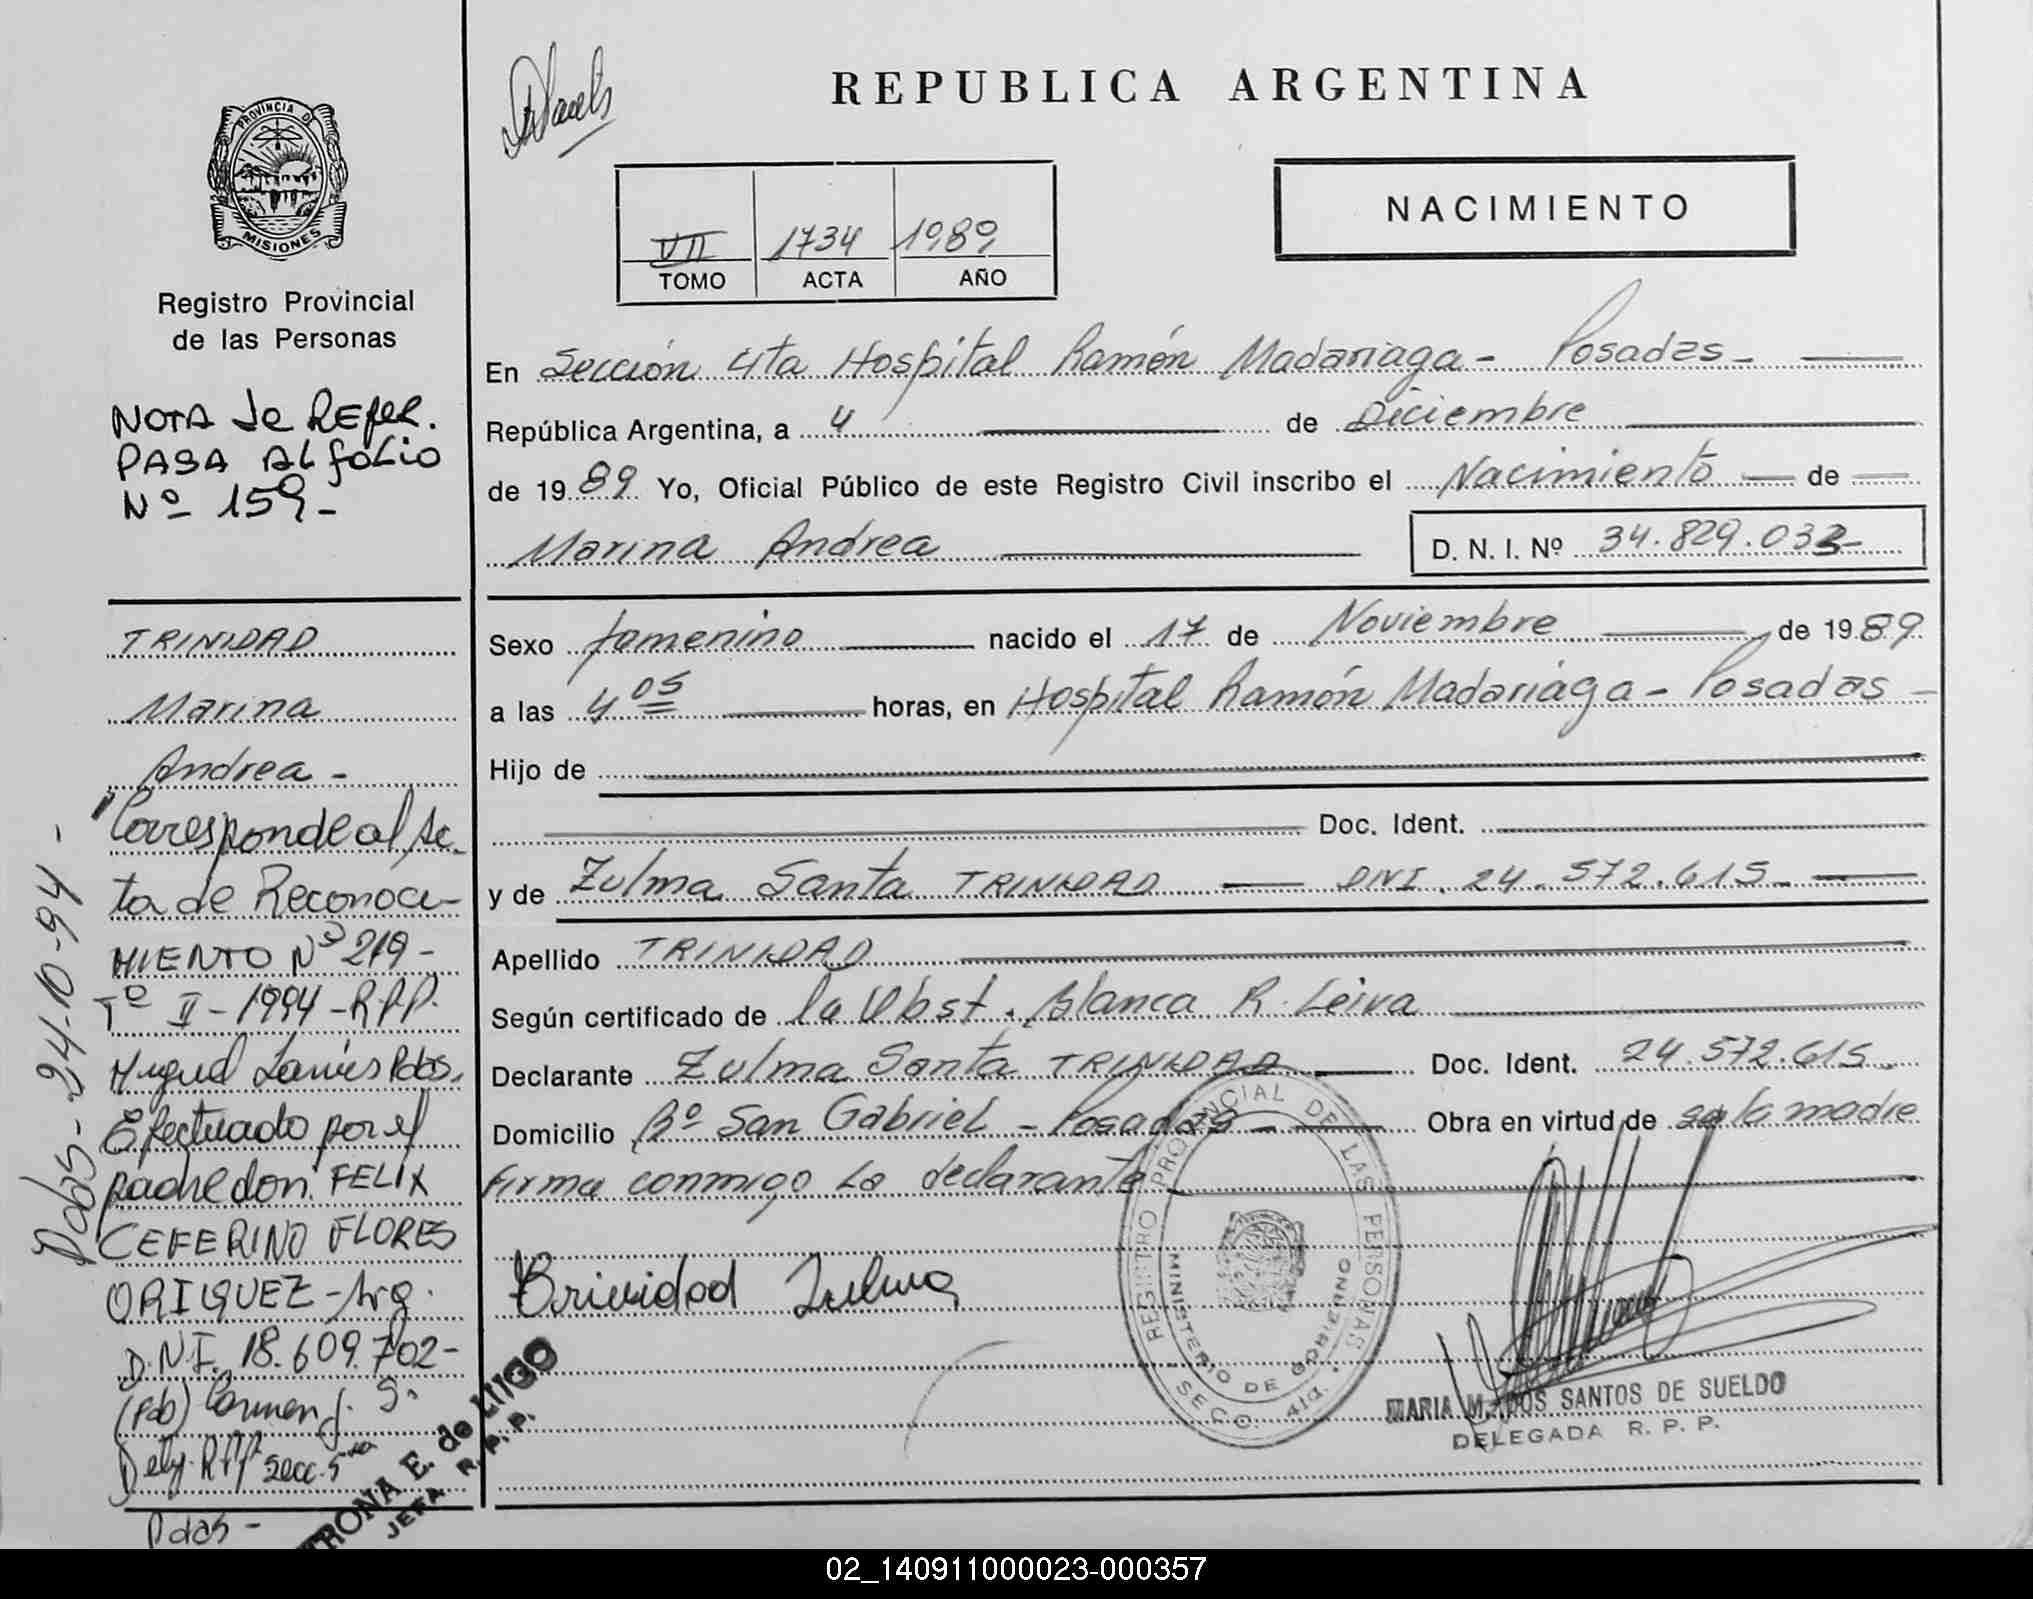 PROVINCIA DE
MISIONES
Registro Provincial
de las Personas
NOTA de REFER.
PASA AL foLio
Nº 159-
TRINIDAD
Marina
Andrea -
"Corresponde al Ac-
ta de Reconoci-
MIENTO Nº 219-
Tº II - 1994 - R.P.P.
Pdas.
Efectuado por el
padre don: FELIX
CEFERINO FLORES
ORIGUEZ - Arg.
D.N.I. 18.609.702-
(Fdo) Carmen J. S.
Deleg. R.P.P. Secc. 5ta
Pdas -
Pdas - 24-10-94 -
E. de LUGO
JEFA R. P. P.
REPUBLICA ARGENTINA
NACIMIENTO
VII 1734 1989
TOMO ACTA AÑO
En Sección 4ta Hospital Ramón Madariaga - Posadas -
República Argentina, a 4 de Diciembre
de 1989 Yo, Oficial Público de este Registro Civil inscribo el Nacimiento de
Marina Andrea D. N. I. Nº 34.829.033-
Sexo femenino nacido el 17 de Noviembre de 1989
a las 4 05 horas, en Hospital Ramón Madariaga - Posadas -
Hijo de
Doc. Ident.
y de Zulma Santa TRINIDAD DNI. 24.572.615-
Apellido TRINIDAD
Según certificado de la Obst. Blanca R. Leiva
Declarante Zulma Santa TRINIDAD Doc. Ident. 24.572.615-
Domicilio Bº San Gabriel - Posadas - Obra en virtud de ser la madre
firma conmigo la declarante
Trinidad Zulma
REGISTRO PROVINCIAL DE LAS PERSONAS
MINISTERIO DE GOBIERNO
SECC. 4ta.
MARIA M. DOS SANTOS DE SUELDO
DELEGADA R. P. P.
02_140911000023-000357